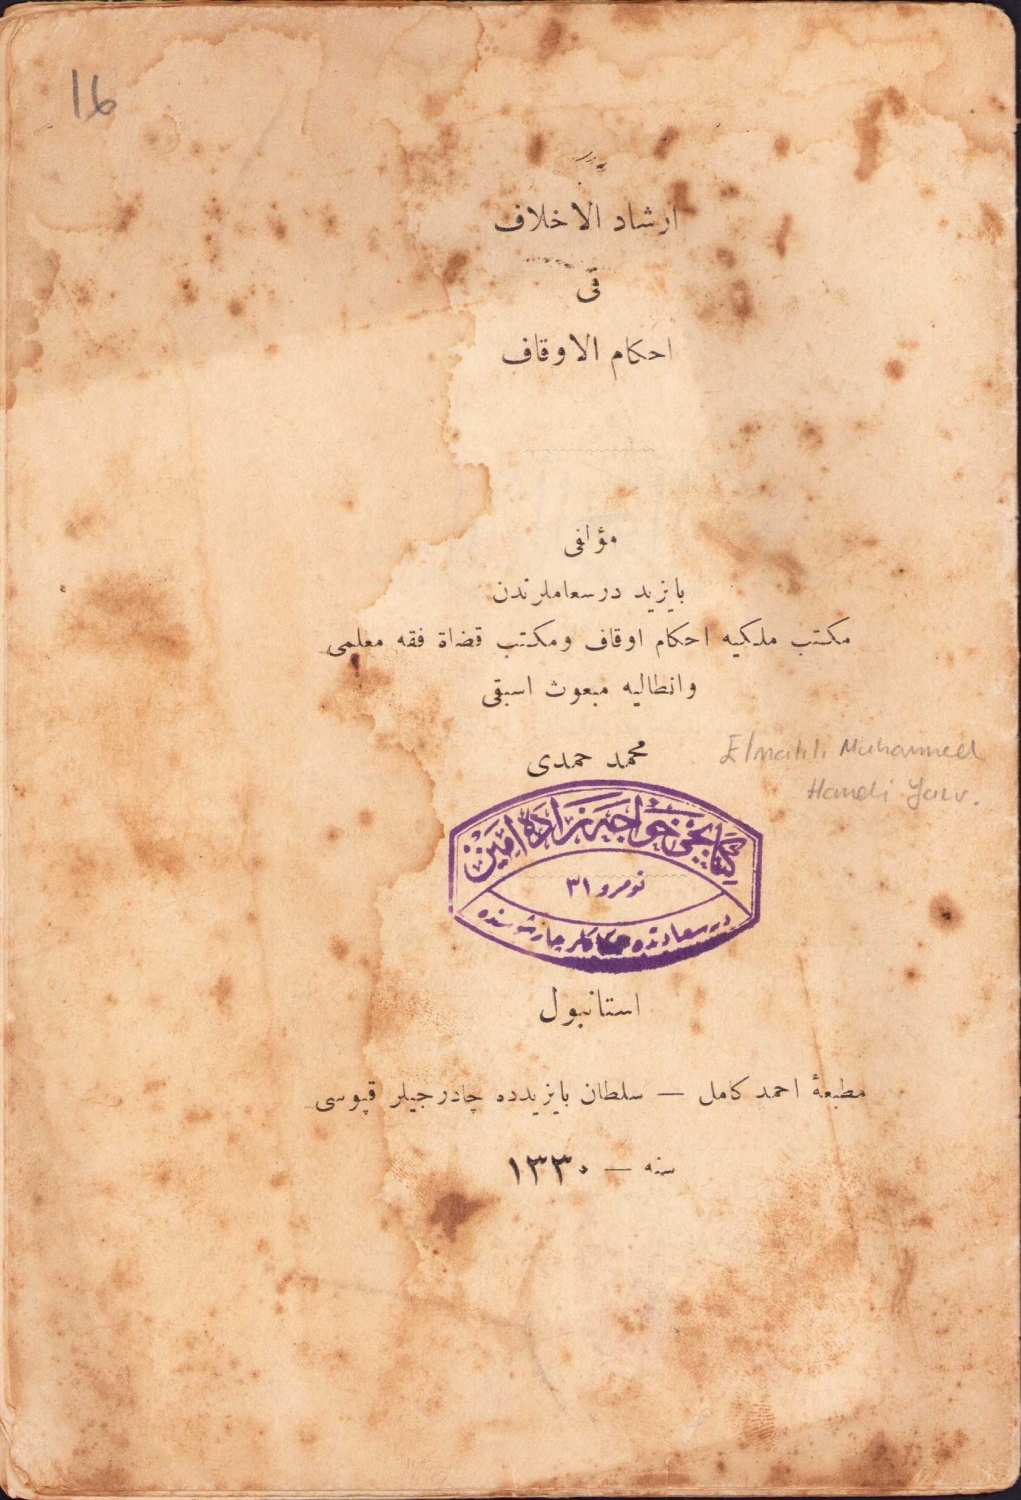 16
ارشاد الاخلاف
فى
احكام الاوقاف
مؤلفى
بايزيد درسعاملرندن
مكتب ملكيه احكام اوقاف ومكتب قضاة فقه معلمى
وانطاليه مبعوث اسبقى
محمد حمدى
Elmalılı Muhammed
Hamdi Yazır.
كتابجى خواجه زاده امين
نومرو ٣١
درسعادتده حكاكلر چارشوسنده
استانبول
مطبعهٔ احمد كامل — سلطان بايزيدده چادرجيلر قپوسى
سنه — ١٣٣٠